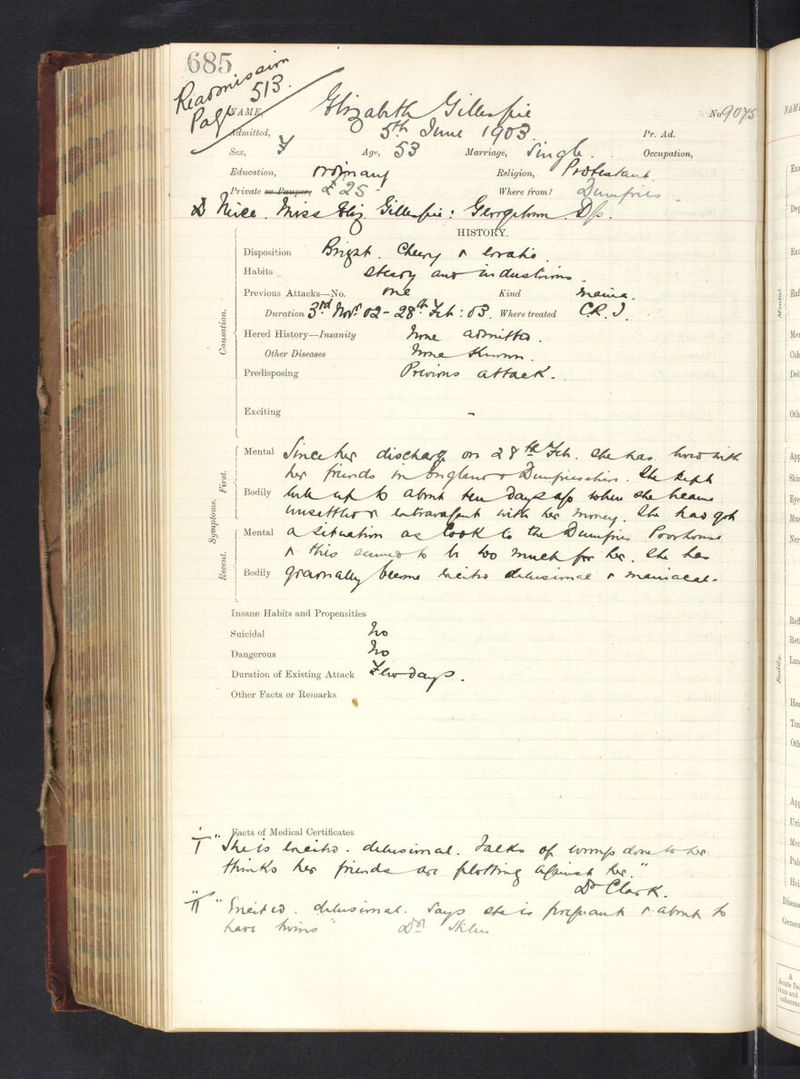 685
Readmission
Page 513.
NAME, Elizabeth Gillespie No 9075
Admitted, 5th June 1903. Pr. Ad.
Sex, F Age, 53 Marriage, Single. Occupation,
Education, ordinary Religion, Protestant.
Private or Pauper, £25 Where from? Dumfries
Niece. Miss Eliz. Gillespie: Georgetown. D/s.
HISTORY.
Disposition Bright. Cheery & lovable.
Habits steady and industrious.
Previous Attacks—No. one Kind mania.
Duration 3rd Novr 02 - 28th Feb: 03. Where treated C.R.I.
Hered History—Insanity None admitted.
Other Diseases None Known.
Predisposing Previous attack.
Exciting -
Causation.
Mental Since her discharge on 28th Feb. she has lived with
her friends in England & Dumfriesshire. She kept
Bodily well up to about ten days ago when she became
unsettled & extravagant with her money. She had got
Mental a situation as Cook to the Dumfries Poorhouse
& this seemed to be too much for her. She has
Bodily gradually become excited delusional & maniacal.
Symptoms.
First.
Recent.
Insane Habits and Propensities
Suicidal No
Dangerous No
Duration of Existing Attack Few days.
Other Facts or Remarks
Facts of Medical Certificates
I "She is excited. delusional. Talks of wrongs done to her
thinks her friends are plotting against her."
Dr Clark.
II "Excited. delusional. Says she is pregnant & about to
have twins" Dr